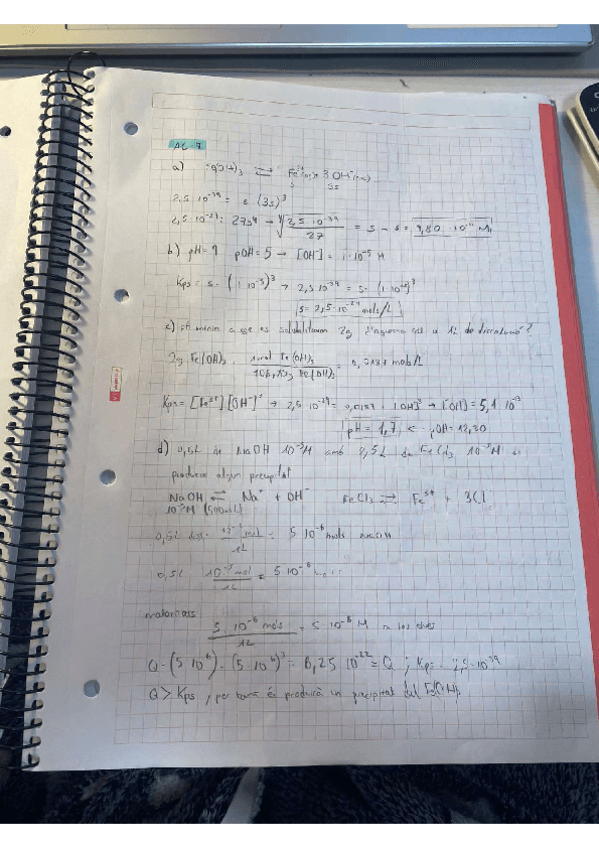 Ac 7
a) Fe(OH)₃ ⇄ Fe³⁺(aq) + 3 OH⁻(aq)
s 3s
2,5·10⁻³⁹ = s (3s)³
2,5·10⁻³⁹ = 27s⁴ → ∜(2,5·10⁻³⁹ / 27) = s → s = 9,80·10⁻¹¹ M
b) pH=9 pOH=5 → [OH⁻] = 1·10⁻⁵ M
Kps = s·(1·10⁻⁵)³ → 2,5·10⁻³⁹ = s·(1·10⁻⁵)³
s = 2,5·10⁻²⁴ mols/L
c) pH mínim a que es solubilitzen 2g d'aquesta sal a 1L de dissolució?
2g Fe(OH)₃ · 1 mol Fe(OH)₃ / Fe(OH)₃ = mols/L
Kps = [Fe³⁺][OH⁻]³ → 2,5·10⁻³⁹ = · [OH]³ → [OH] = 5,1·10⁻¹³
pH = 1,7 ← pOH = 12,30
d) 0,5L de NaOH 10⁻⁵M amb 0,5L de FeCl₃ 10⁻⁵M es
produeix algun precipitat
NaOH ⇄ Na⁺ + OH⁻ FeCl₃ ⇄ Fe³⁺ + 3Cl
10⁻⁵M (500mL)
0,5L · 10⁻⁵ mol / 1L = 5·10⁻⁶ mols
0,5L 10⁻⁵ mol / 1L = 5·10⁻⁶
5·10⁻⁶ mols / 1L = 5·10⁻⁶ M
Q = (5·10⁻⁶)·(5·10⁻⁶)³ = 6,25·10⁻²² = Q ; Kps = 2,5·10⁻³⁹
Q > Kps, per tant és produirà un precipitat del Fe(OH)₃